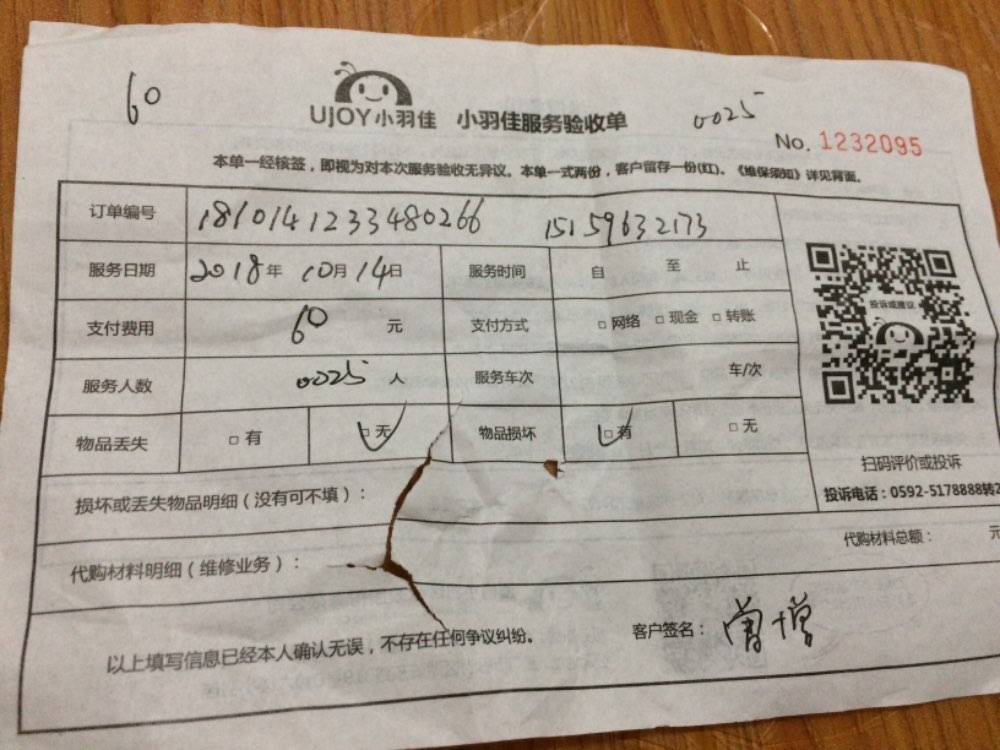 60
UJOY小羽佳 小羽佳服务验收单 0025
No. 1232095
本单一经核签，即视为对本次服务验收无异议。本单一式两份，客户留存一份(红)。《维保须知》详见背面。
订单编号 1810141233480266 15159632173
服务日期 2018年 10月14日 服务时间 自 至 止
支付费用 60 元 支付方式 □网络 □现金 □转账
服务人数 0025 人 服务车次 车/次
物品丢失 □有 □无 物品损坏 □有 □无
投诉或建议
扫码评价或投诉
投诉电话：0592-5178888转2
损坏或丢失物品明细（没有可不填）：
代购材料明细（维修业务）： 代购材料总额： 元
以上填写信息已经本人确认无误，不存在任何争议纠纷。 客户签名：